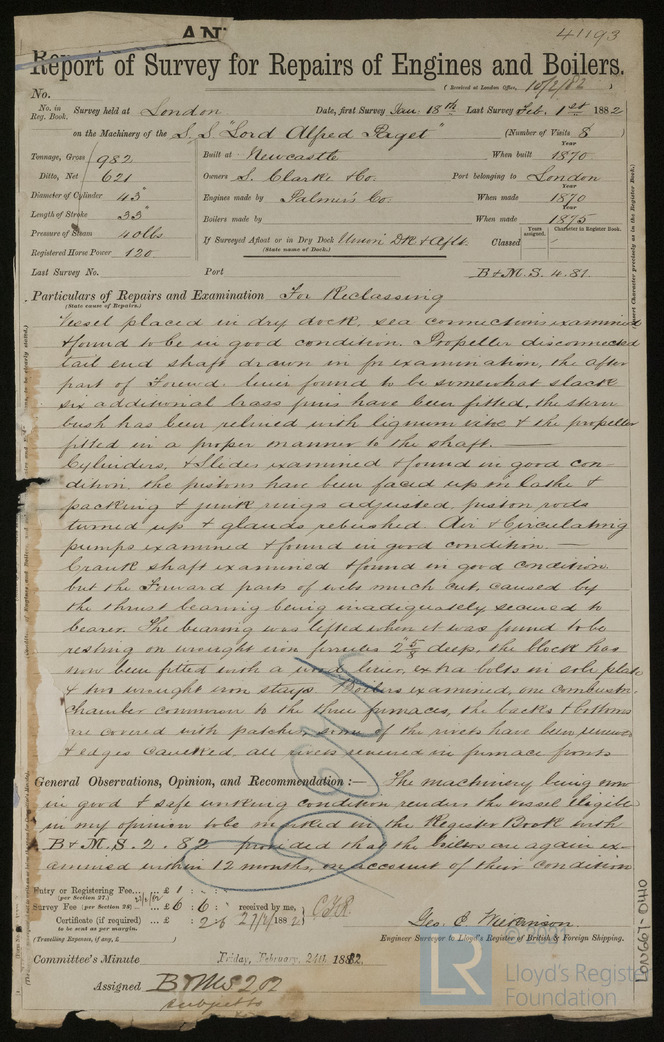 AN
41193
Report of Survey for Repairs of Engines and Boilers.
(Received at London Office, 10/2/82)
No.
No. in Reg. Book. Survey held at London Date, first Survey Jan. 18th Last Survey Feb. 1st 1882
on the Machinery of the S.S. "Lord Alfred Paget" (Number of Visits 8)
Tonnage, Gross 982 Built at Newcastle When built Year 1870
Ditto, Net 621 Owners S. Clarke & Co. Port belonging to London
Diameter of Cylinder 43" Engines made by Palmer's Co. When made Year 1870
Length of Stroke 33" Boilers made by When made Year 1875
Pressure of Steam 40 lbs If Surveyed Afloat or in Dry Dock Union DK & Aflt. Classed Years assigned. Character in Register Book.
(State name of Dock.)
Registered Horse Power 120
Last Survey No. Port B&M.S. 4.81.
Particulars of Repairs and Examination For Reclassing
(State cause of Repairs.)
Vessel placed in dry dock, sea connections examined
& found to be in good condition. Propeller disconnected
tail end shaft drawn in for examination, the after
part of Forwd. liner found to be somewhat slack
six additional brass pins have been fitted, the stern
bush has been relined with lignum vitae & the propeller
fitted in a proper manner to the shaft.
Cylinders, & Slides examined & found in good con-
dition, the pistons have been faced up in lathe &
packing & junk rings adjusted, piston rods
turned up & glands rebushed. Air & Circulating
pumps examined & found in good condition.
Crank shaft examined & found in good condition
but the Forward parts of webs much cut, caused by
the thrust bearing being inadequately secured to
bearer. The bearing was lifted when it was found to be
resting on wrought iron ferrules 2 5/8" deep, the block has
now been fitted with a wood liner, extra bolts in sole plate
& two wrought iron stays. Boilers examined, one combustn.
chamber common to the three furnaces, the backs & bottoms
are covered with patches, some of the rivets have been renewed
& edges caulked, all rivets renewed in furnace fronts
General Observations, Opinion, and Recommendation:— The machinery being now
in good & safe working condition renders the vessel eligible
in my opinion to be marked in the Register Book with
B&M.S. 2.82 provided that the boilers are again ex-
amined within 12 months, on account of their condition
Entry or Registering Fee... £ 1 : - :
(per Section 27.)
Survey Fee (per Section 28) ... £ 6 : 6 : received by me,
Certificate (if required) ... £ : 2 : 6 27/2/1882
to be sent as per margin.
(Travelling Expenses, if any, £ )
Geo. E. Wilkinson
Engineer Surveyor to Lloyd's Register of British & Foreign Shipping.
Committee's Minute Friday, February 24th 1882.
Assigned B&MS 2,82
subject to
LON667-0440
© 2020
LR
Lloyd's Register
Foundation